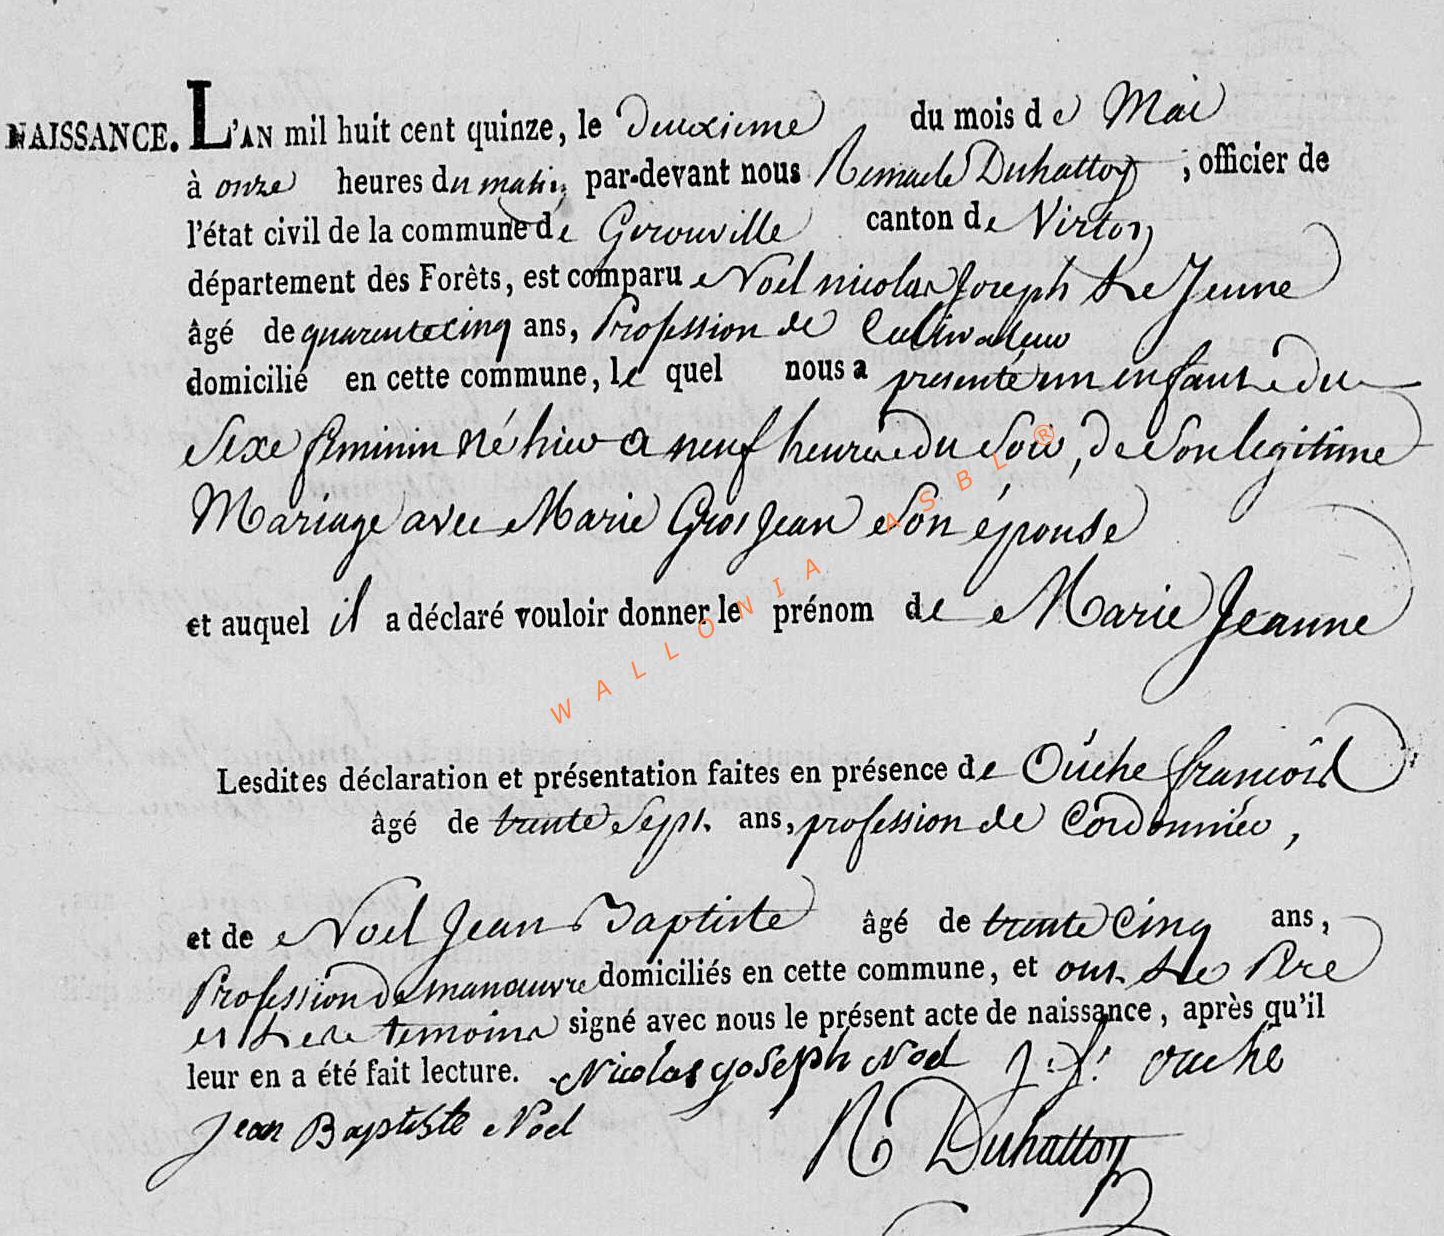 NAISSANCE. L'AN mil huit cent quinze, le deuxieme du mois de Mai
à onze heures du matin, par-devant nous Remacle Duhattoy, officier de
l'état civil de la commune de Gerouville canton de Virton
département des Forêts, est comparu Noel nicolas Joseph Le Jeune
âgé de quarente cinq ans, Profession de Cultivateur
domicilié en cette commune, le quel nous a presenté un enfant du
Sexe feminin né hier a neuf heures du Soir, de Son legitime
Mariage avec Marie Gros Jean Son épouse
et auquel il a déclaré vouloir donner le prénom de Marie Jeanne
Lesdites déclaration et présentation faites en présence de Ouche francois
âgé de trente Sept ans, profession de Cordonnier,
et de Noel Jean Baptiste âgé de trente Cinq ans,
Profession de manœuvre domiciliés en cette commune, et ont Le Pere
et Les temoins signé avec nous le présent acte de naissance, après qu'il
leur en a été fait lecture. Nicolas Joseph Noel J. f. ouche
Jean Baptiste Noel R Duhattoy
WALLONIA ASBL®